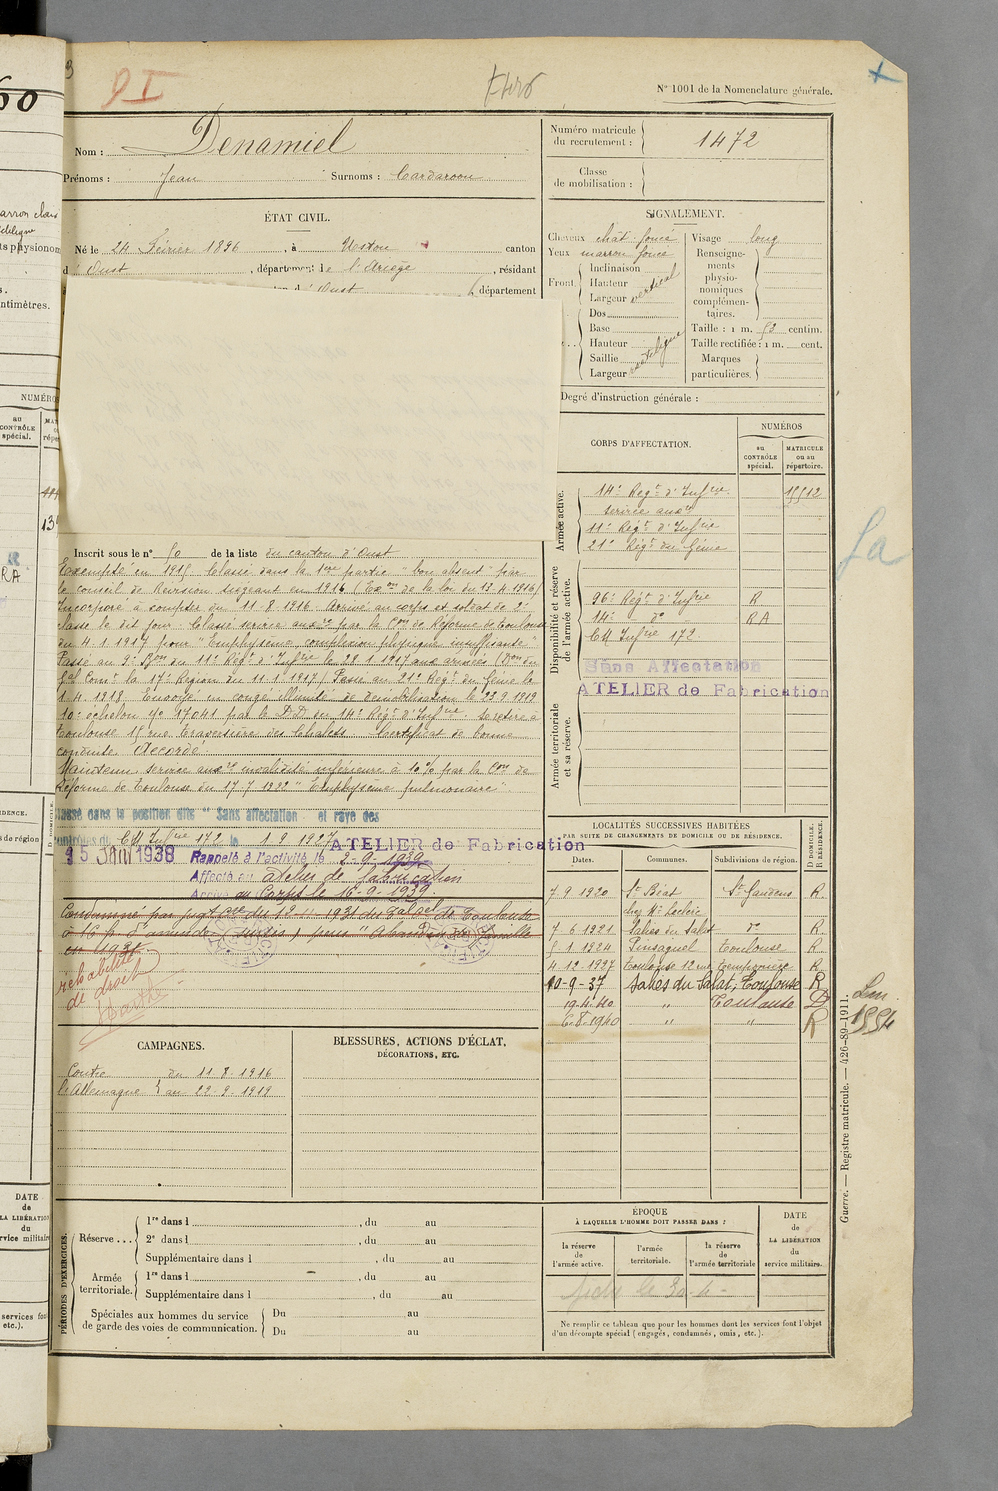 60
N° 1001 de la Nomenclature générale.
Nom : Denamiel
Prénoms : Jean Surnoms :
Numéro matricule du recrutement : 1472
Classe de mobilisation :
ÉTAT CIVIL.
Né le 24 Février 1896, à Ustou canton
d'Oust, département de l'Ariège, résidant
d'Oust département
SIGNALEMENT.
Cheveux chât: foncé
Yeux marron foncé
Front. Inclinaison
Hauteur vertical
Largeur
Dos
Base
Hauteur
Saillie
Largeur
Visage long
Renseignements physionomiques complémentaires.
Taille : 1 m. 53 centim.
Taille rectifiée : 1 m. cent.
Marques particulières.
Degré d'instruction générale :
CORPS D'AFFECTATION.
NUMÉROS
au CONTRÔLE spécial.
MATRICULE ou au répertoire.
Armée active.
14e Regt d'Infrie 15512
service auxre
11e Regt d'Infrie
21e Regt du Génie
Disponibilité et réserve de l'armée active.
96e Regt d'Infrie R
14e do RA
CM Infrie 172
Sans Affectation
ATELIER de Fabrication
Armée territoriale et sa réserve.
Inscrit sous le n° 50 de la liste du canton d'Oust
Exempté en 1915. Classé dans la 1ère partie "bon absent" par
le conseil de Revision siégeant en 1916 (Exon de la loi du 13.4.1916)
Incorporé à compter du 11.8.1916. Arrivé au corps et soldat de 2e
classe le dit jour. Classé service auxre par la Con de Réforme de Toulouse
du 4.1.1917 pour "Emphysème, complexion physique insuffisante"
Passé au 9e Bon du 11e Regt d'Infrie le 28.1.1917 aux armées (Don du
Gal Comt la 17e Région du 11.1.1917). Passé au 21e Regt du Génie le
1.4.1918. Envoyé en congé illimité de démobilisation le 23.9.1919
10e échelon No 17041 par le D.D du 14e Regt d'Infrie. Se retire à
Toulouse 15 rue Traversière des Chalets. Certificat de bonne
conduite "Accordé"
Maintenu service auxre invalidité inférieure à 10% par la Con de
Réforme de Toulouse du 17.7.1922 "Emphysème pulmonaire"
Classé dans la position dite "Sans affectation" et rayé des
contrôles du CM Infrie 172 le 1.8.1927 ATELIER de Fabrication
15 Janv 1938 Rappelé à l'activité le 2-9-1939
Affecté à: atelier de fabrication
Arrivé au Corps le 16-9-1939.
Condamné par jugt du 12.11.1931 du Tal de Toulouse
à 16 f. d'amende (sursis) pour "Abandon de famille"
en 1931.
réhabilité
de droit
LOCALITÉS SUCCESSIVES HABITÉES
PAR SUITE DE CHANGEMENTS DE DOMICILE OU DE RÉSIDENCE.
Dates. Communes. Subdivisions de région. D DOMICILE. R RÉSIDENCE.
7.9.1920 St Béat St Gaudens R.
chez Mr Leclerc
7.6.1921 Salies du Salat do R
5.1.1924 Pinsaguel Toulouse R
4.12.1927 Toulouse 12 rue Temponières R
10-9-37 Salies du Salat, Toulouse R
19.4.40 " Toulouse D
6-8-1940 " " R
CAMPAGNES.
Contre du 11.8.1916
l'Allemagne au 22.9.1919
BLESSURES, ACTIONS D'ÉCLAT,
DÉCORATIONS, ETC.
Guerre. — Registre matricule. — 426-89-1911.
PÉRIODES D'EXERCICES.
Réserve ... 1re dans l , du au
2e dans l , du au
Supplémentaire dans l , du au
Armée territoriale. 1re dans l , du au
Supplémentaire dans l , du au
Spéciales aux hommes du service de garde des voies de communication. Du au
Du au
ÉPOQUE
À LAQUELLE L'HOMME DOIT PASSER DANS :
la réserve de l'armée active.
l'armée territoriale.
la réserve de l'armée territoriale
DATE de LA LIBÉRATION du service militaire.
Ne remplir ce tableau que pour les hommes dont les services font l'objet
d'un décompte spécial (engagés, condamnés, omis, etc.).